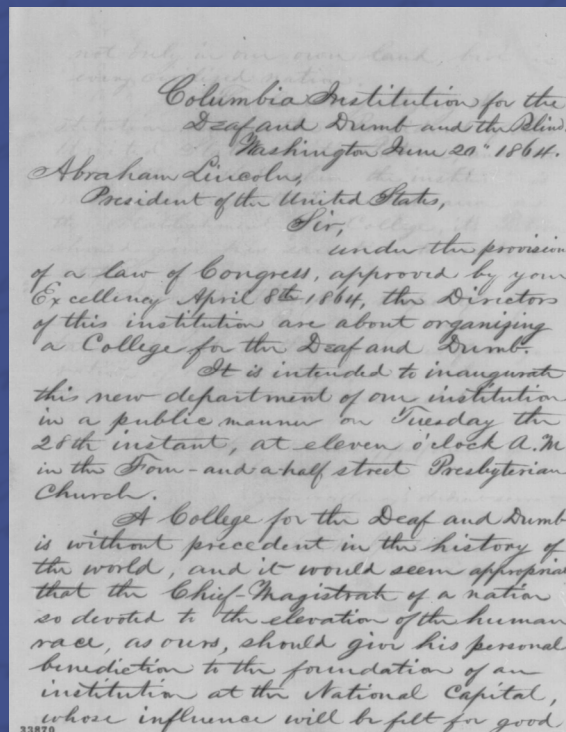 Columbia Institution for the
Deaf and Dumb and the Blind.
Washington June 20th 1864.
Abraham Lincoln,
President of the United States,
Sir,
under the provision
of a law of Congress, approved by your
Excellency April 8th 1864, the Directors
of this institution are about organizing
a College for the Deaf and Dumb.
It is intended to inaugurate
this new department of our institution
in a public manner on Tuesday the
28th instant, at eleven o'clock A.M
in the Four-and a half street Presbyterian
Church.
A College for the Deaf and Dumb
is without precedent in the history of
the world, and it would seem appropria
that the Chief-Magistrate of a nation
so devoted to the elevation of the human
race, as ours, should give his personal
benediction to the foundation of an
institution at the National Capital,
whose influence will be felt for good
33870